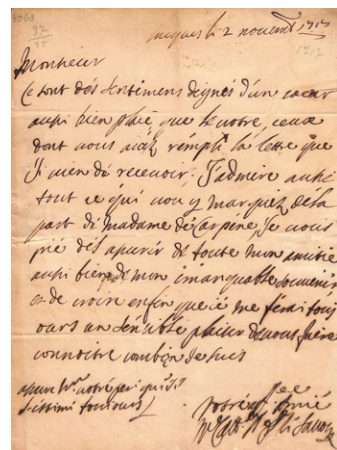 8068
92
ce 2 novemb 1717
1717
Monsieur
Ce sont dés sentimens dignés d'un coeur
aussi bien placé que le votre, ceux
dont vous avéz rémpli la lettre que
Ji vien dé recevoir, J'admire aussi
tout ce qui vou y marquéz déla
part dé madame dé je vous
prié dés apurir dé toute mon amitié
aussi bien qe dé mon souvenir
et de croire enfin que ié me férai touj
ours un sénsiblé plaisir dé vous faire
connoitre combien je suis
votré per qui
toujours
votré amié